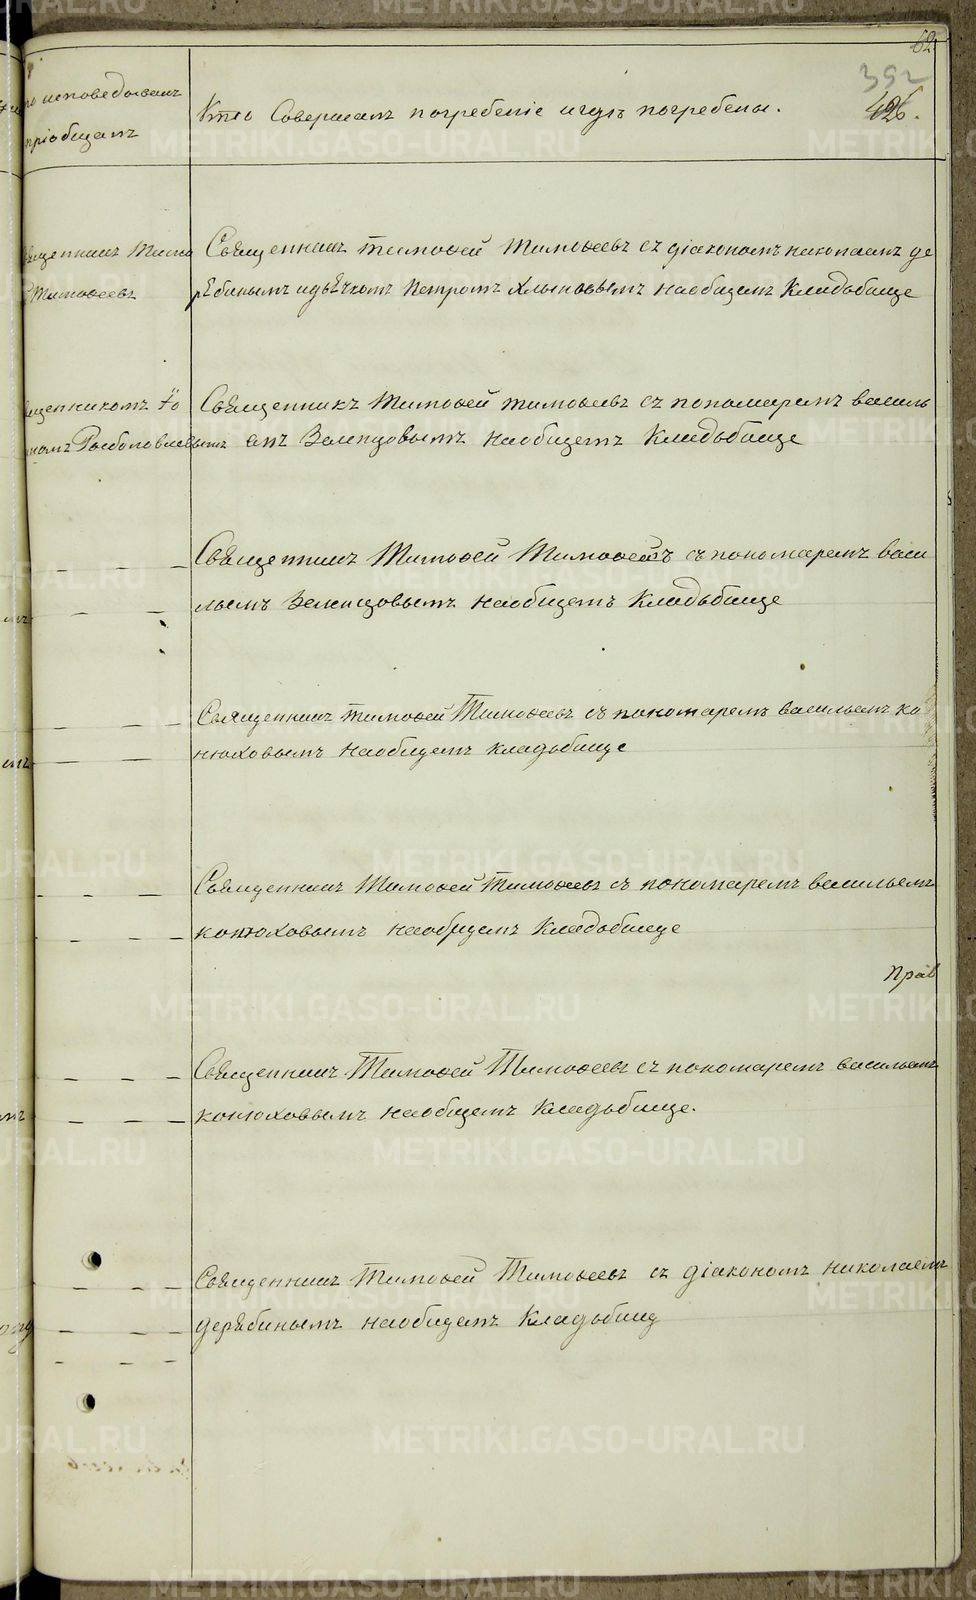 62
392
426.
исповедывалъ
пріобщалъ
Кто Совершалъ погребеніе и гдѣ погребены.
Священникъ Тимо
Тимофеевъ
Священникъ Тимофей Тимофеевъ съ діакономъ николаемъ де
рѣбинымъ и дьячкомъ Петромъ Хлыновымъ на общемъ Кладьбище
священникомъ Іо
номъ Рыболовлевымъ
Священникъ Тимофей тимофеевъ съ пономаремъ василь
емъ Зеленцовымъ на общемъ Кладьбище
Священникъ Тимофей Тимофеевъ съ пономаремъ васи
льемъ Зеленцовымъ на общемъ Кладьбище
Священникъ тимофей Тимофеевъ съ пономаремъ васильемъ ко
нюховымъ на общемъ кладьбище
Священникъ Тимофей Тимофеевъ съ пономаремъ васильемъ
конюховымъ на общемъ Кладьбище
Прав
Священникъ Тимофей Тимофеевъ съ пономаремъ васильемъ
конюховымъ на общемъ Кладьбище.
Священникъ Тимофей Тимофеевъ съ діакономъ николаемъ
дерѣбинымъ на общемъ Кладьбищ
METRIKI.GASO-URAL.RU